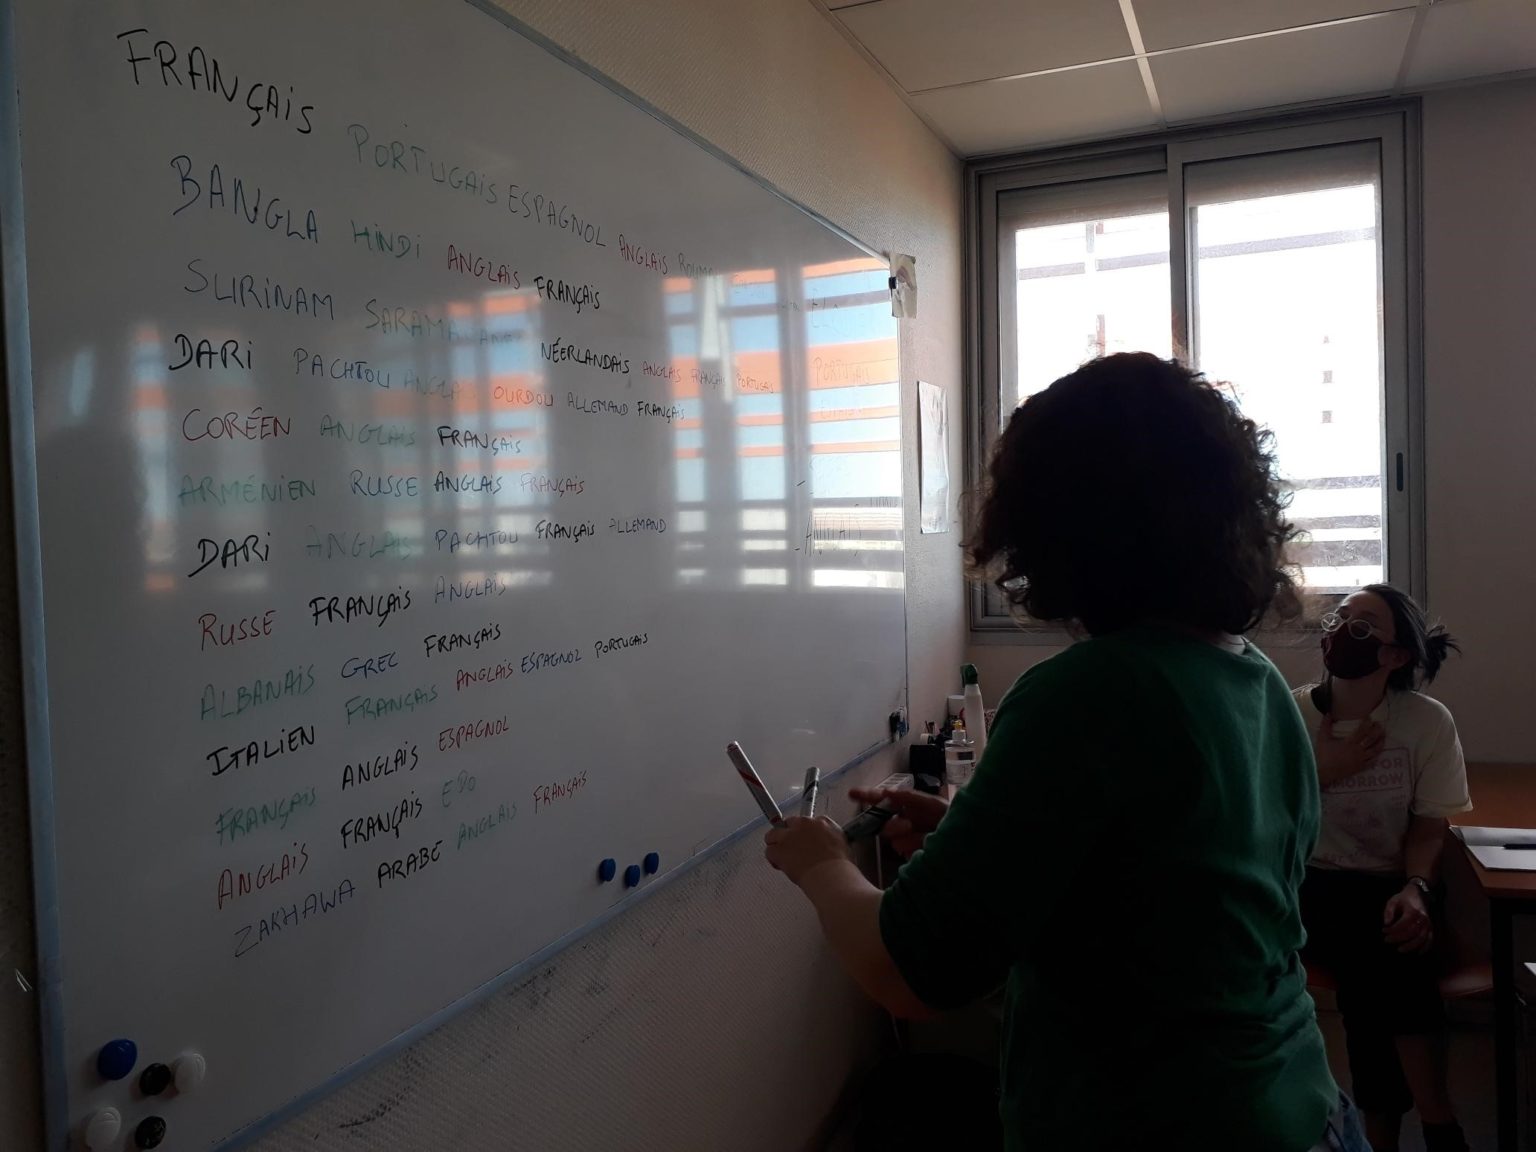 FRANÇAIS PORTUGAIS ESPAGNOL ANGLAIS
BANGLA HINDI ANGLAIS FRANÇAIS
SURINAM NÉERLANDAIS ANGLAIS FRANÇAIS PORTUGAIS
DARI PACHTOU ANGLAIS OURDOU ALLEMAND FRANÇAIS
CORÉEN ANGLAIS FRANÇAIS
ARMÉNIEN RUSSE ANGLAIS FRANÇAIS
DARI ANGLAIS PACHTOU FRANÇAIS ALLEMAND
RUSSE FRANÇAIS ANGLAIS
ALBANAIS GREC FRANÇAIS
ITALIEN FRANÇAIS ANGLAIS ESPAGNOL PORTUGAIS
FRANÇAIS ANGLAIS ESPAGNOL
ANGLAIS FRANÇAIS EDO
ZAKHAWA ARABE ANGLAIS FRANÇAIS
PORTUGAIS
FOR